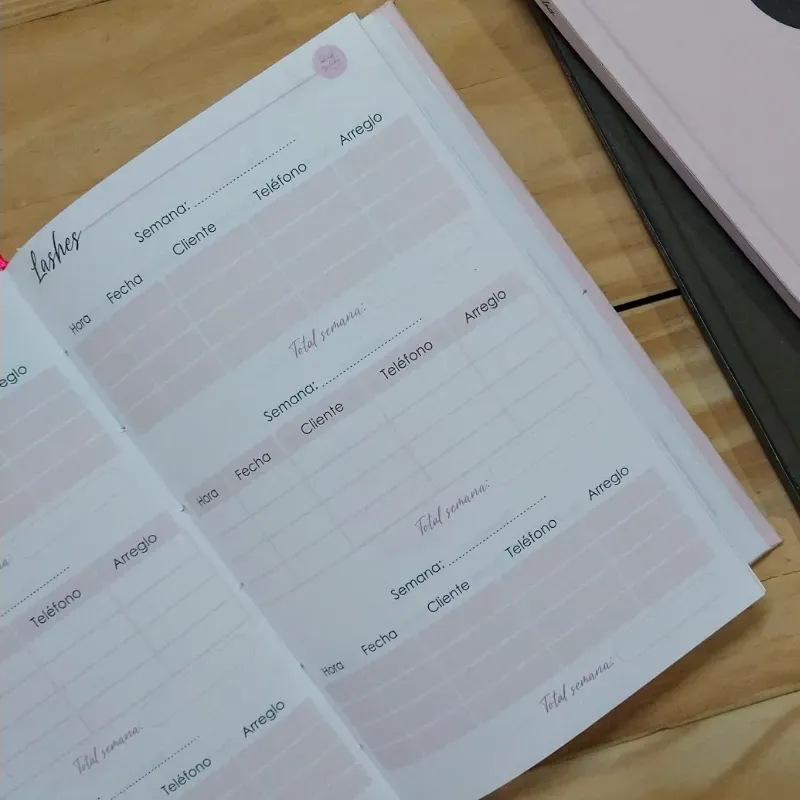 eglo
Total semana:
Teléfono Arreglo
Total semana:
Teléfono Arreglo
Lashes
Semana: ........................
Hora Fecha Cliente Teléfono Arreglo
Total semana:
Semana: ........................
Hora Fecha Cliente Teléfono Arreglo
Total semana:
Semana: ........................
Hora Fecha Cliente Teléfono Arreglo
Total semana: